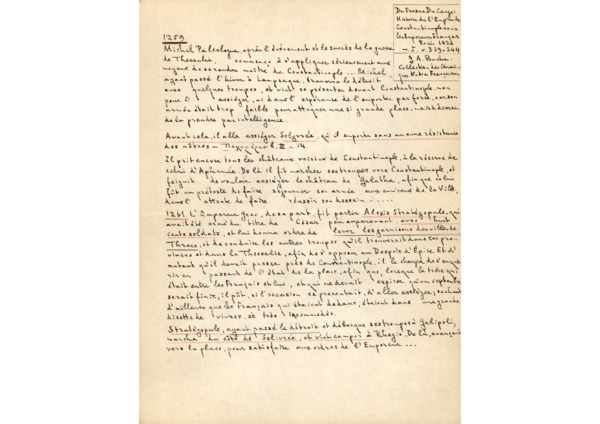 Du Fresne Du Cange
Histoire de l'Empire de
Constantinople sous
les Empereurs Français
Paris 1826
T. I p. 339-344
J. A. Buchon
Collection des Chroni-
ques Nat. Françaises
1259
Michel Paléologue, après l'événement et le succès de la guerre
de Thessalie, commença à s'appliquer sérieusement aux
moyens de se rendre maître de Constantinople ... Michel,
ayant passé l'hiver à Lampsaque, traversa le détroit
avec quelques troupes, et vint se présenter devant Constantinople, non
pour l'assiéger, ni dans l'espérance de l'emporter par force, car son
armée était trop faible pour attaquer une si grande place, mais à dessein
de la prendre par intelligence.
Avant cela, il alla assiéger Selyvrée, qu'il emporta sans aucune résistance
des nôtres — l. II - 14
Il prit encore tous les châteaux voisins de Constantinople, à la réserve de
celui d'Apiamée. De là il fit marcher ses troupes vers Constantinople, et
feignit de vouloir assiéger le château de Galatha, afin que cela lui
fût un prétexte de faire séjourner son armée aux environs de la Ville,
dans l'attente de faire réussir son dessein ......
1261 L'Empereur grec, de sa part, fit partir Alexis Stratégopule, qui
avait été orné du titre de César pour amener avec huit
cents soldats, et lui donna ordre de lever les garnisons des villes de
Thrace, et de conduire les autres troupes qu'il trouverait dans ces pro-
vinces et dans la Thessalie, afin de s'opposer au Despote d'Epire. Et d'
autant qu'il devait passer près de Constantinople, il le chargea de s'enqué-
rir en passant de l'état de la place, afin que, lorsque la trève qui
était entre les Français et lui, et qui devait expirer qu'en septembre
serait finie, il pût, si l'occasion se présentait, d'aller assiéger, sachant
d'ailleurs que les Français qui étaient dedans, étaient dans une grande
disette de vivres, et très incommodés.
Stratégopule, ayant passé le détroit et débarqué ses troupes à Galipoli,
marcha du côté de Selivrée, et vint camper à Rhegio. De là, avançant
vers la place, pour satisfaire aux ordres de l'Empereur ...